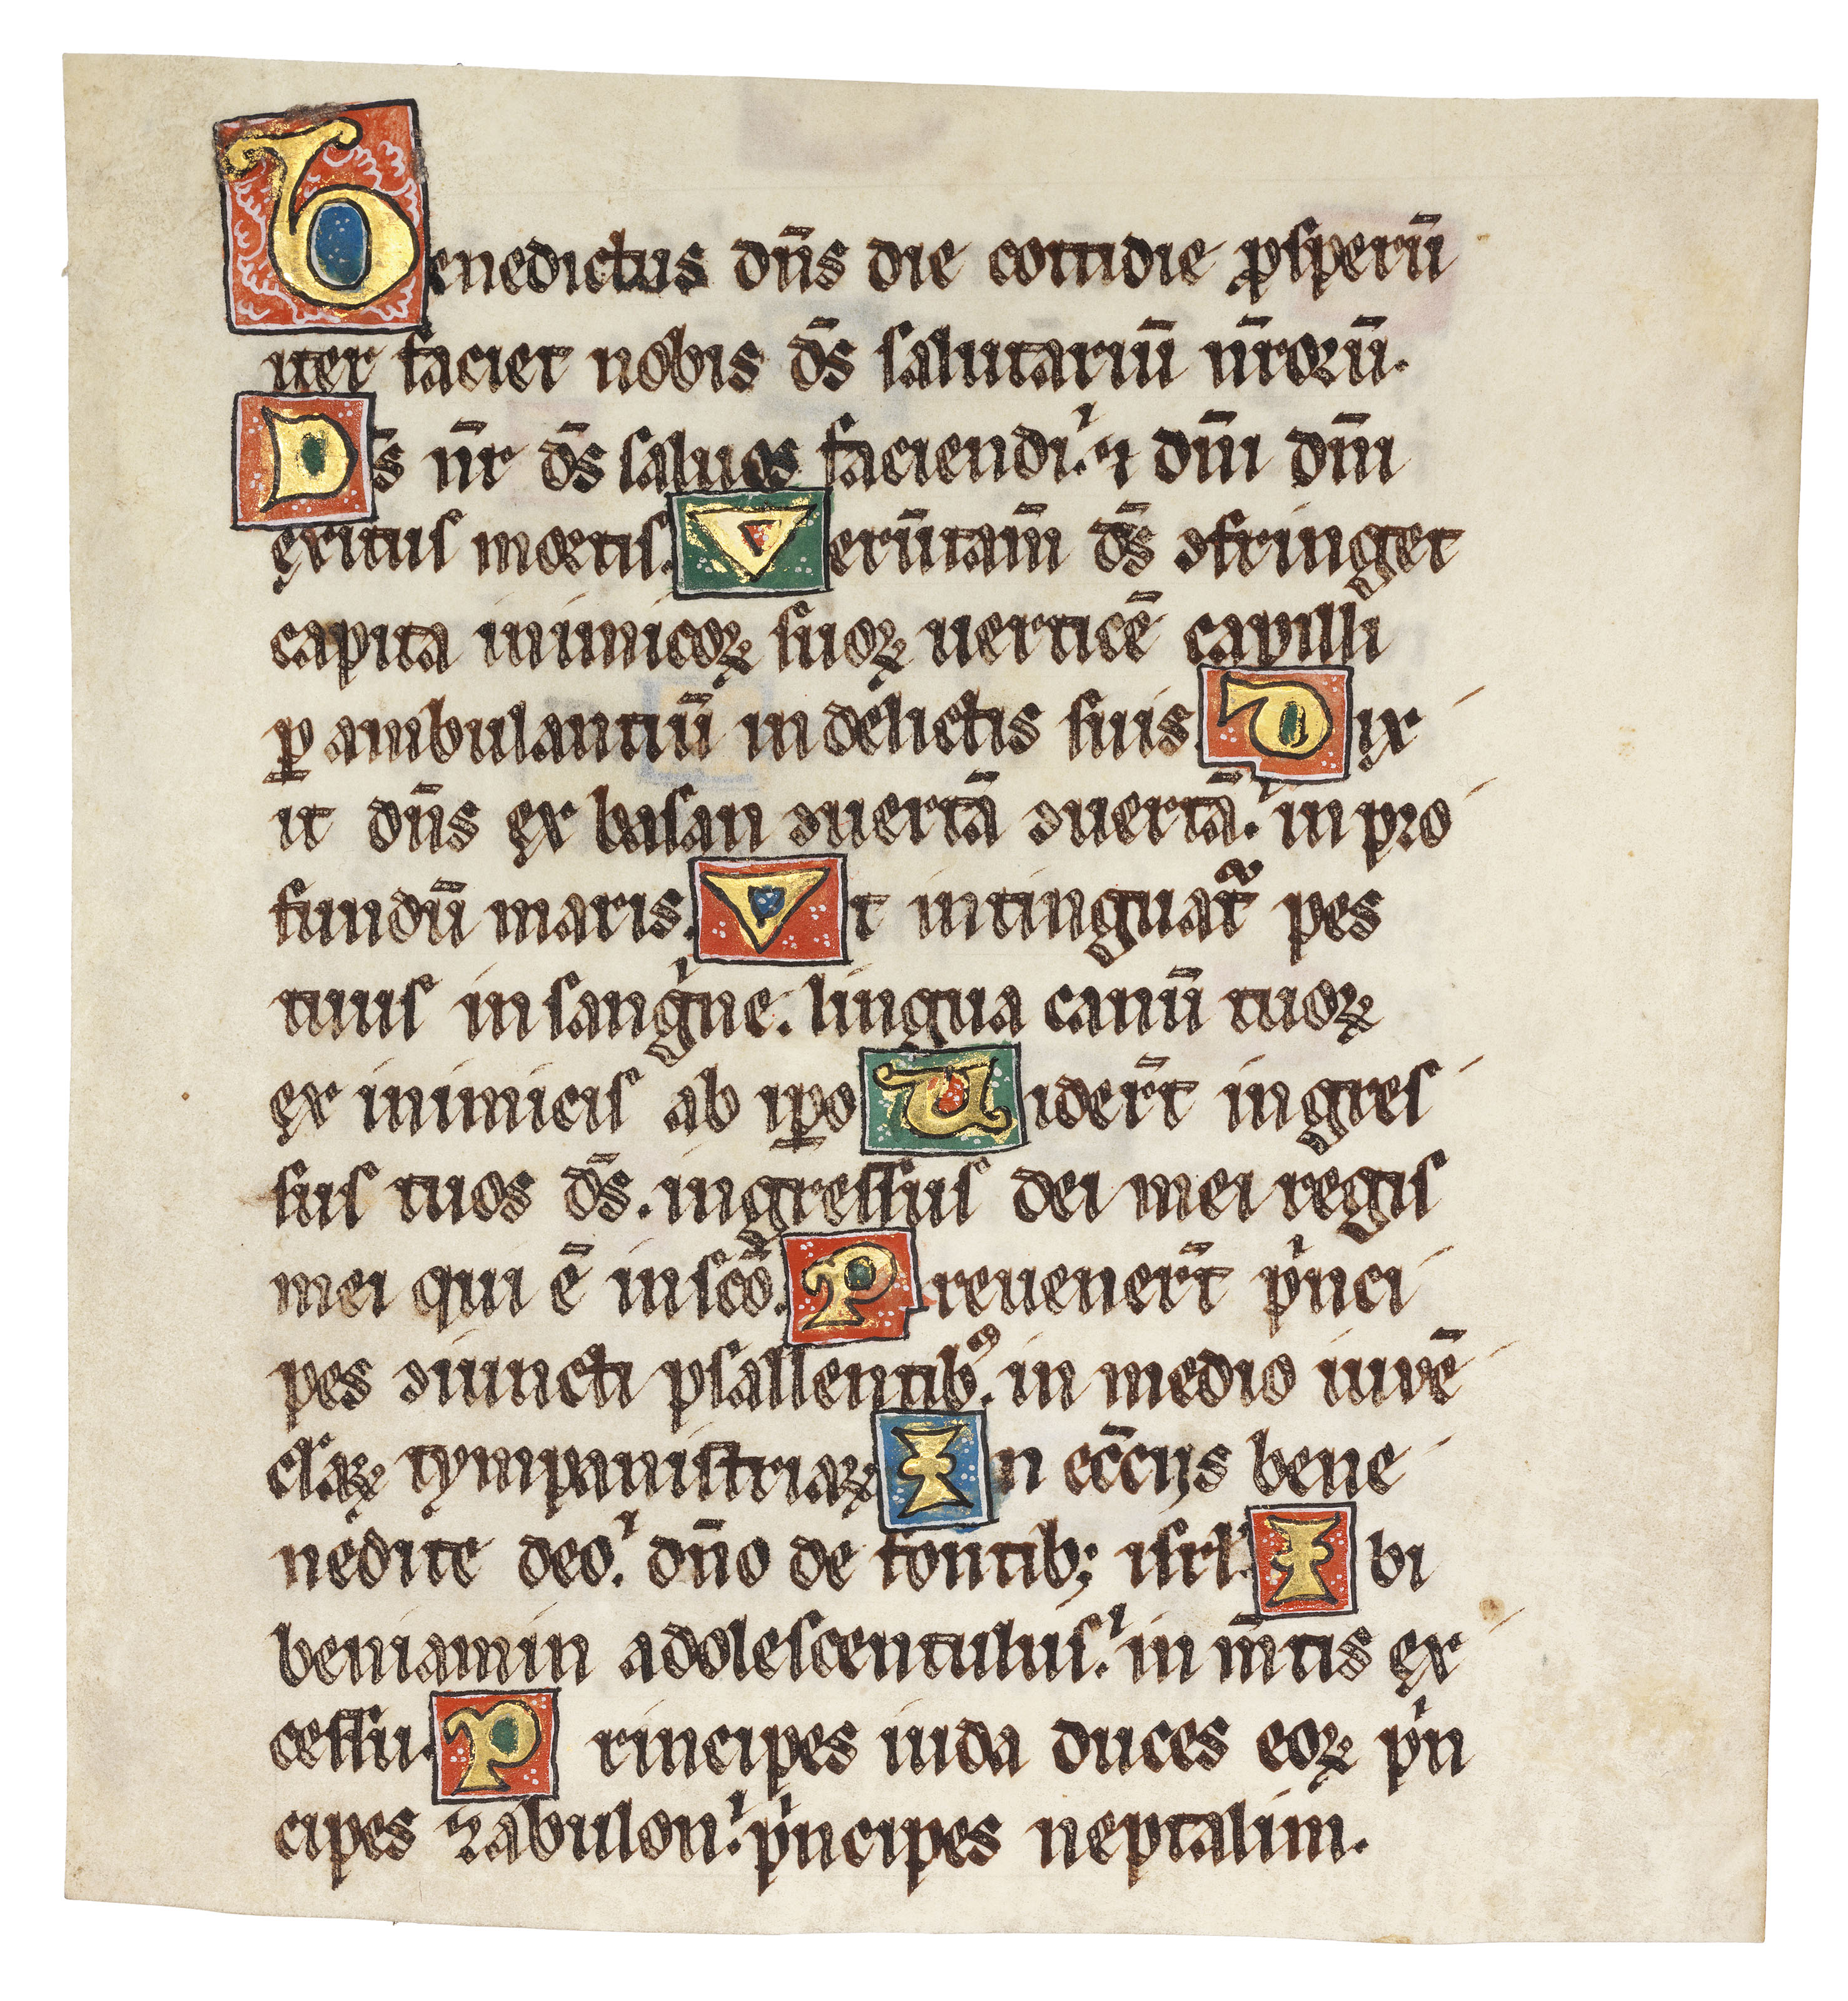 Benedictus dn̄s die cottidie ꝓsperū
iter faciet nobis ds̄ salutariū nr̄orū.
Ds̄ nr̄ ds̄ saluos faciendi. ⁊ dn̄i dn̄i
exitus mortis. Verūtam̄ ds̄ ↄfringet
capita inimicoꝝ suoꝝ uerticē capilli
ꝑ ambulantiū in delictis suis. Dix
it dn̄s ex basan ↄuertā ↄuertā. in pro
fundū maris. Vt intinguat᷑ pes
tuus in sangͥne. lingua canū tuoꝝ
ex inimicis ab ip̱o Uider̄t ingres
sus tuos ds̄. ingressus dei mei regis
mei qui ē in sc̄o. Preuener̄t pͥnci
pes ↄiuncti psallentibꝰ. in medio iuuē
claꝝ tympanistriaꝝ In ecc̄ijs bene
nedite deo. dn̄o de fontib; isrl. Ibi
beniamin adolescentulus. in m̄tis ex
cessu. Principes iuda duces eoꝝ pͥn
cipes zabulon. pͥncipes neptalim.